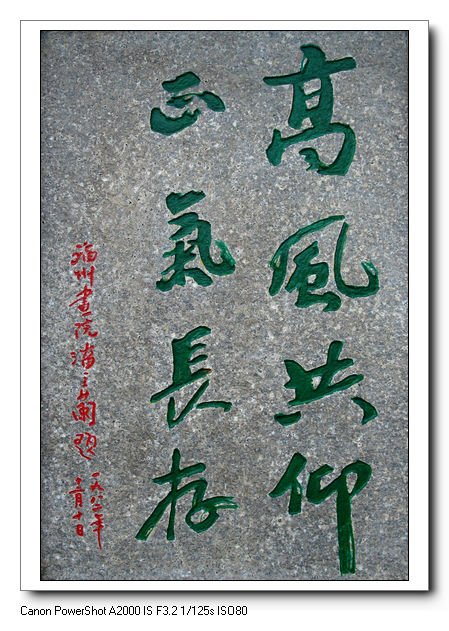 高風共仰
正氣長存
福州畫院潘主蘭題
一九八二年
Canon PowerShot A2000 IS F3.2 1/125s ISO80